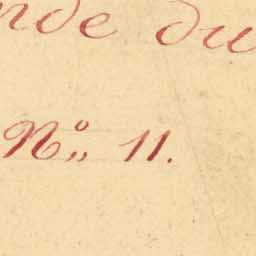 nde du
Nº„ 11.